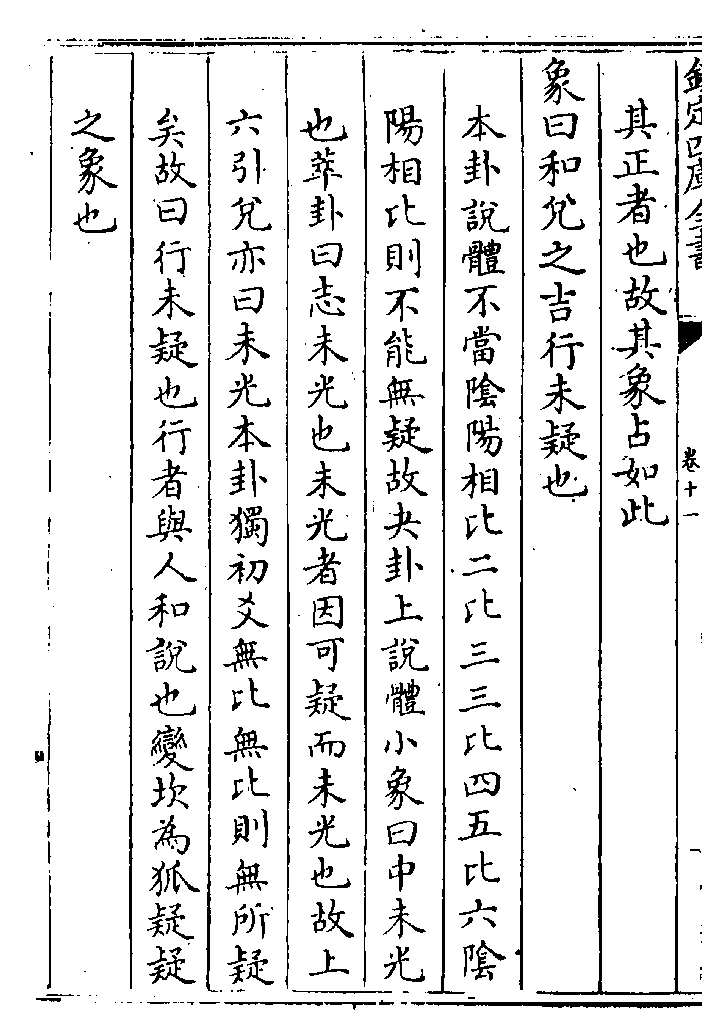 欽定四庫全書
卷十一
其正者也故其象占如此
象曰和兌之吉行未疑也
本卦說體不當陰陽相比二比三三比四五比六陰
陽相比則不能無疑故夬卦上說體小象曰中未光
也萃卦曰志未光也未光者因可疑而未光也故上
六引兌亦曰未光本卦獨初爻無比無比則無所疑
矣故曰行未疑也行者與人和說也變坎為狐疑疑
之象也